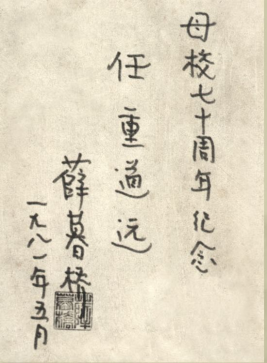 母校七十周年纪念
任重道远
薛暮桥
一九八一年五月